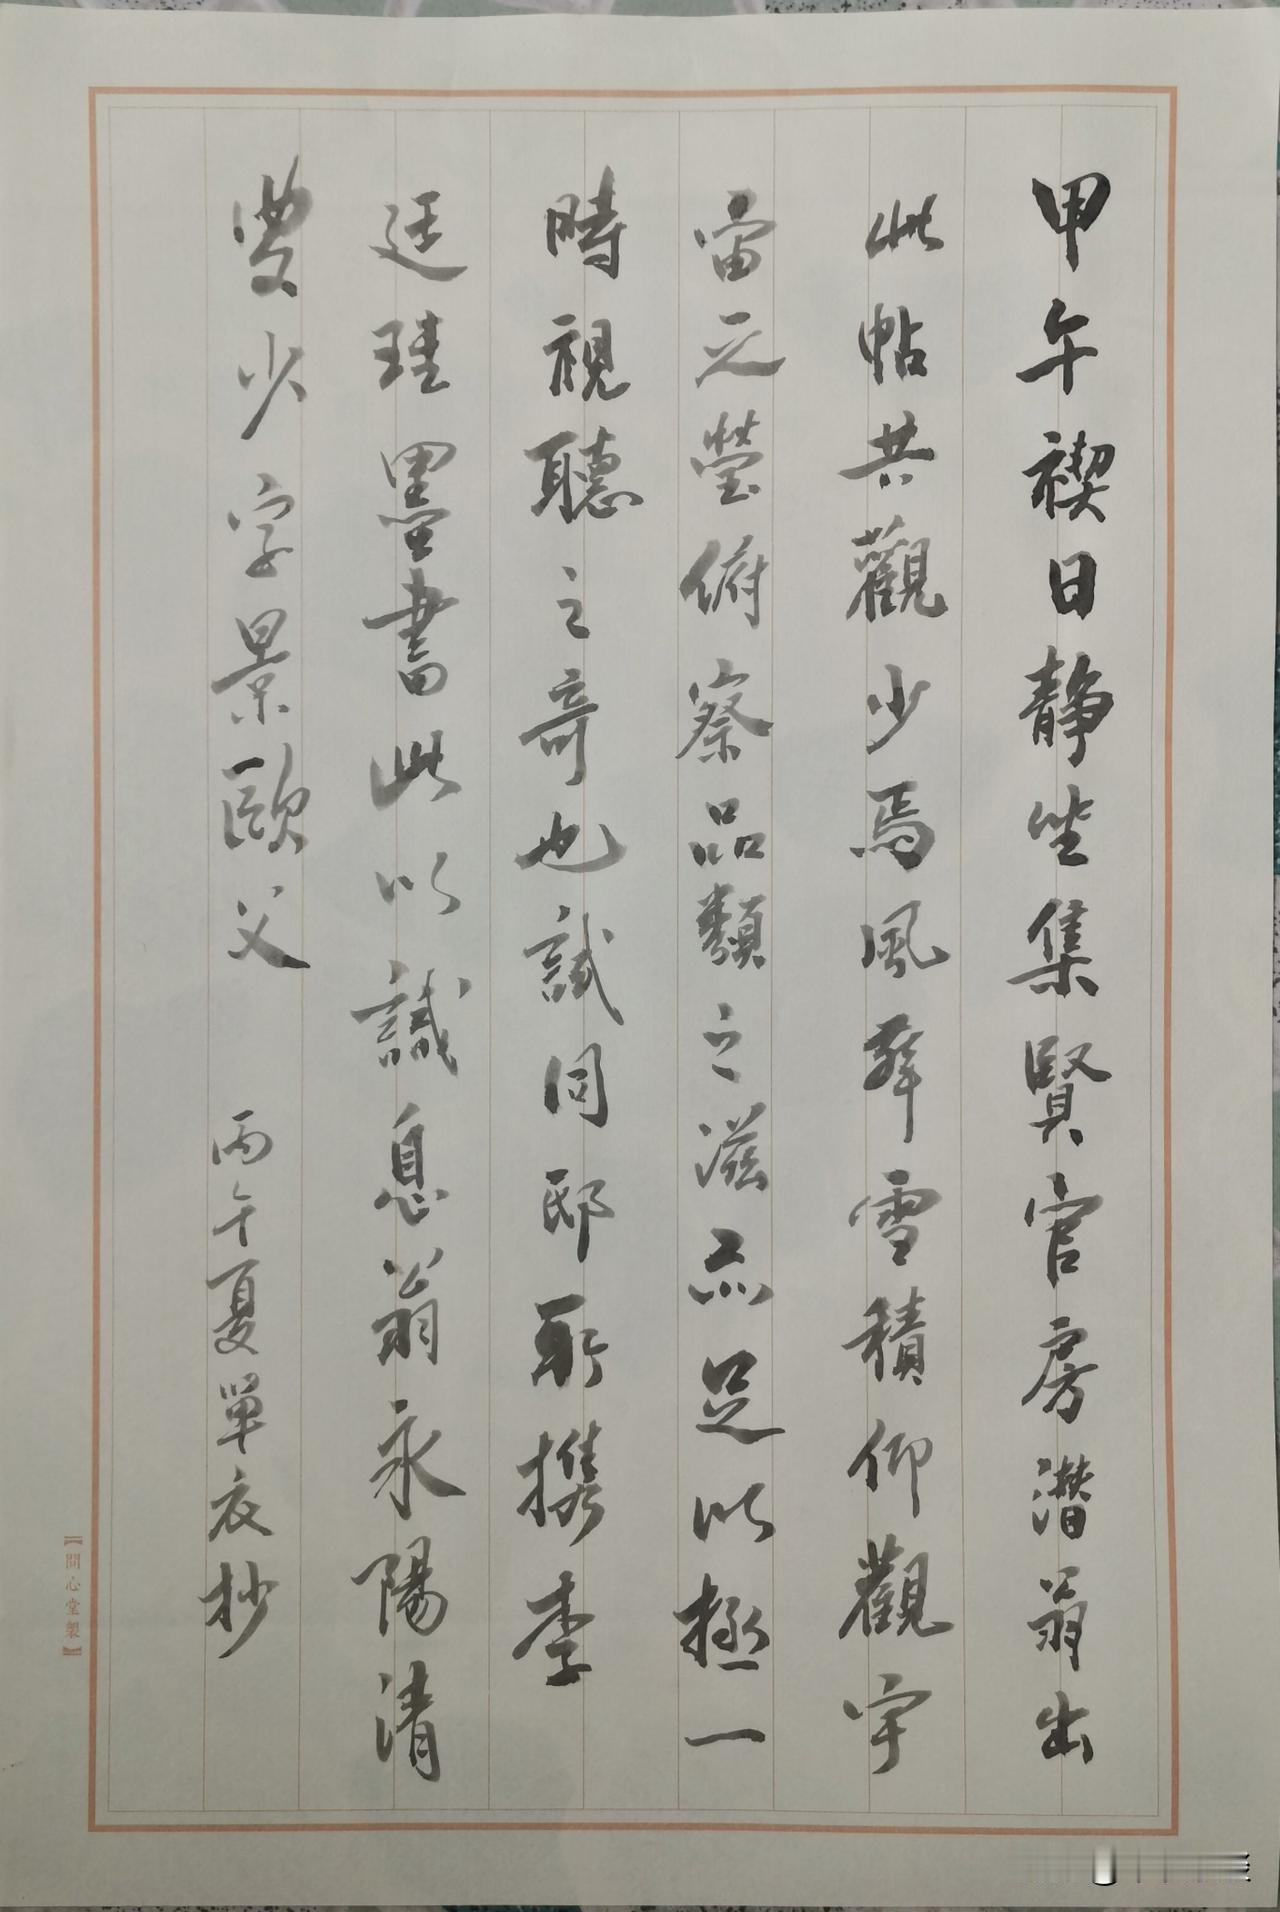 甲午禊日静坐集賢官房潛翁出
此帖共觀少焉風舞雪積仰觀宇
宙之瑩俯察品類之滋亦足以極一
時視聽之奇也試同邸聊携李
廷珪墨書此以識息翁永陽清
叟少字景歐父
丙午夏單衣抄
【問心堂製】